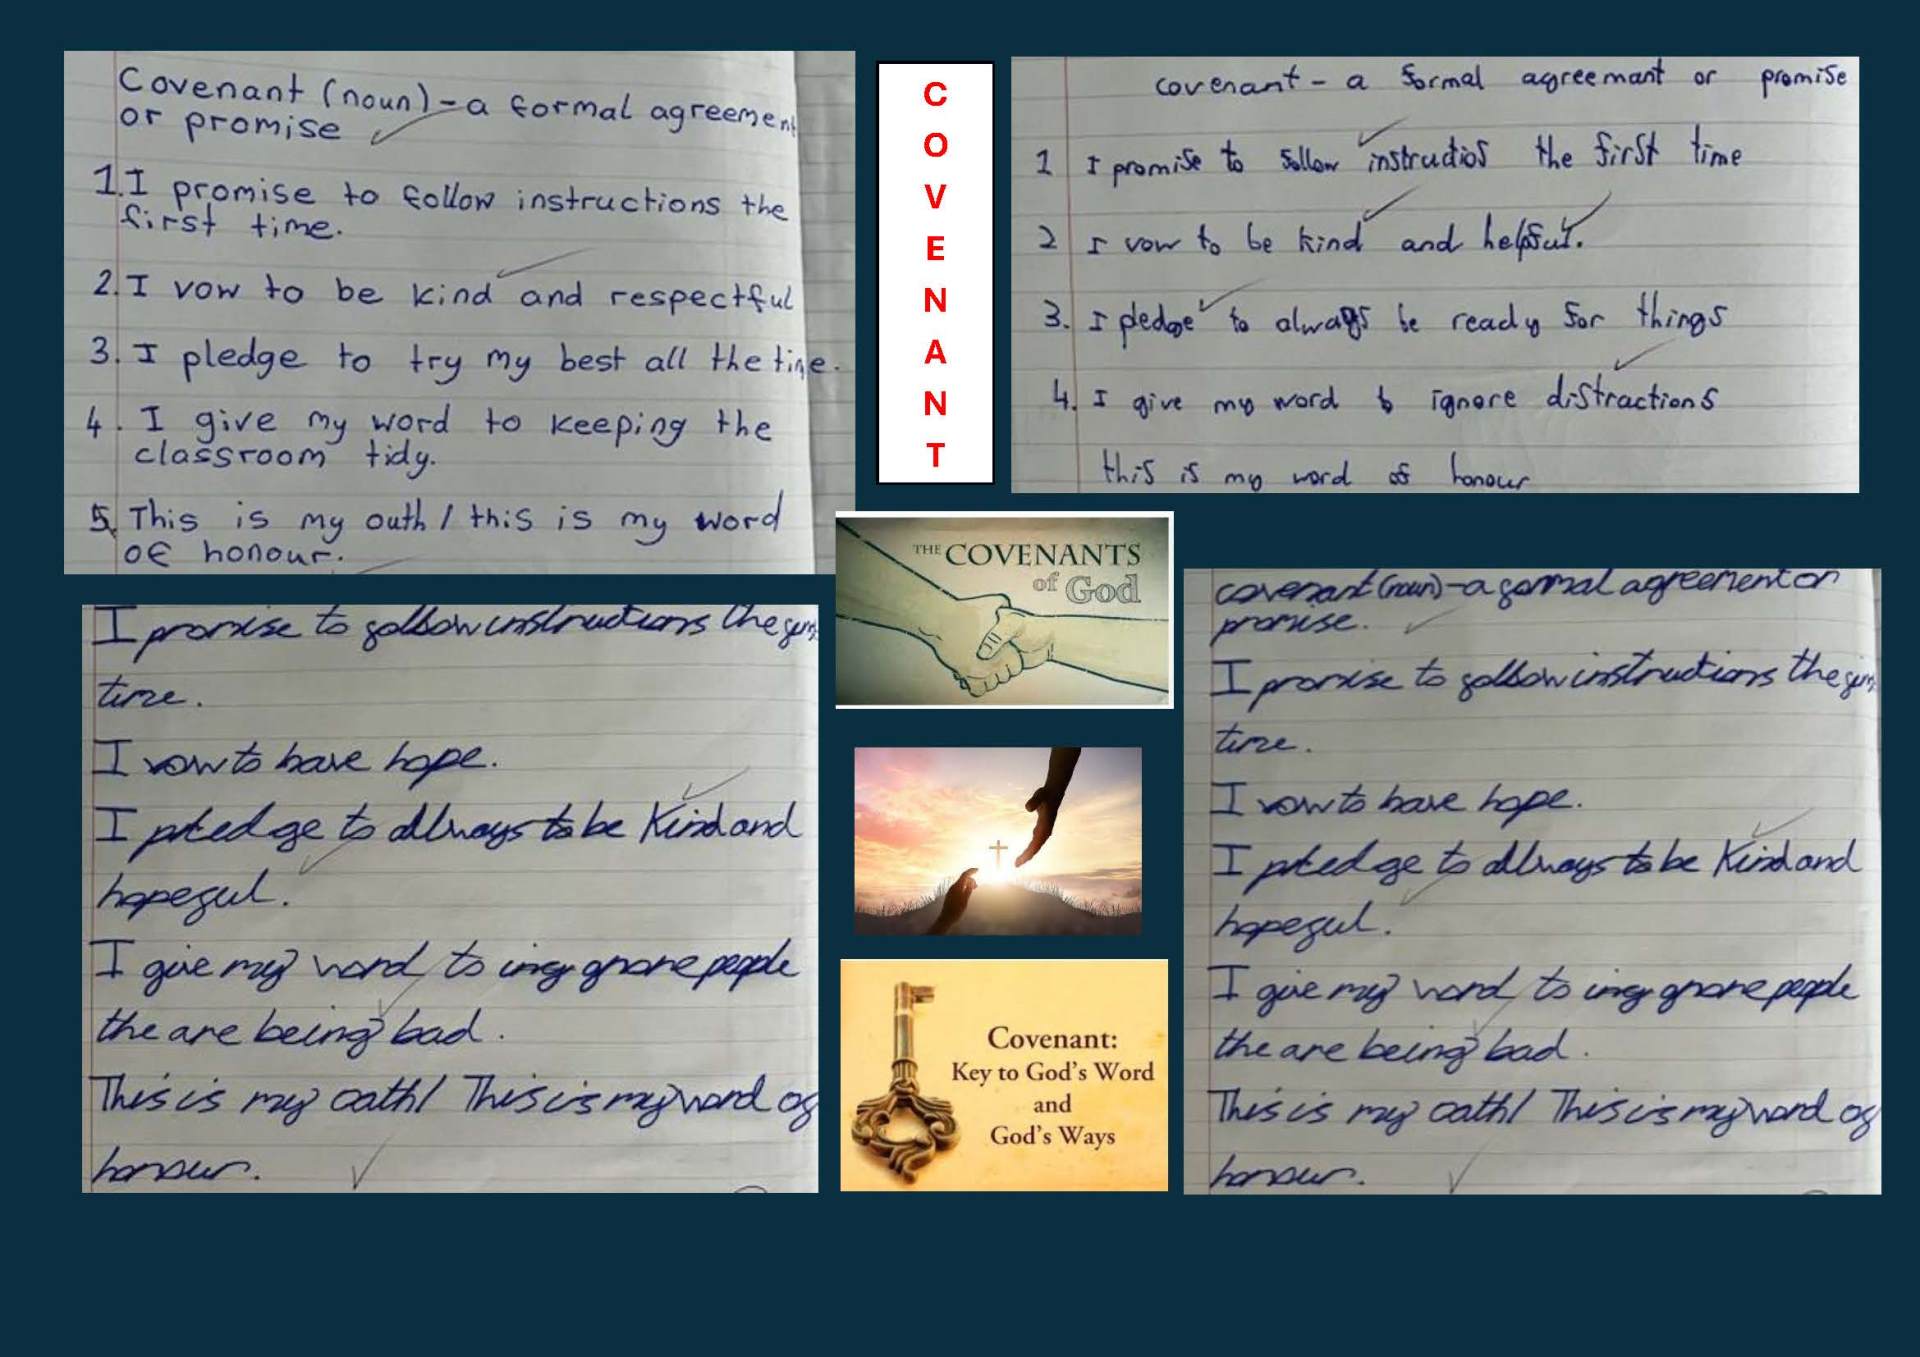 Covenant (noun) - a formal agreement
or promise
1. I promise to follow instructions the
first time.
2. I vow to be kind and respectful
3. I pledge to try my best all the time.
4. I give my word to keeping the
classroom tidy.
5. This is my outh / this is my word
of honour.
C
O
V
E
N
A
N
T
covenant - a formal agreemant or promise
1 I promise to follow instructios the first time
2 I vow to be kind and helpful.
3. I pledge to always be ready for things
4. I give my word to ignore distractions
this is my word of honour
THE COVENANTS
of God
I promise to follow instructions the
time.
I vow to have hope.
I pledge to always to be kind and
hopeful.
I give my word to ignore people
the are being bad.
This is my oath / This is my word of
honour.
Covenant:
Key to God's Word
and
God's Ways
covenant (noun) - a formal agreement or
promise.
I promise to follow instructions the
time.
I vow to have hope.
I pledge to always to be kind and
hopeful.
I give my word to ignore people
the are being bad.
This is my oath / This is my word of
honour.